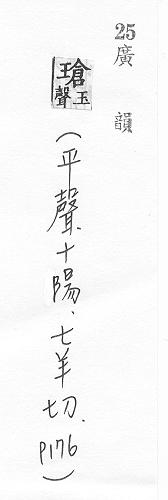 25廣韻
瑲玉聲
(平聲、十陽、七羊切、P176)